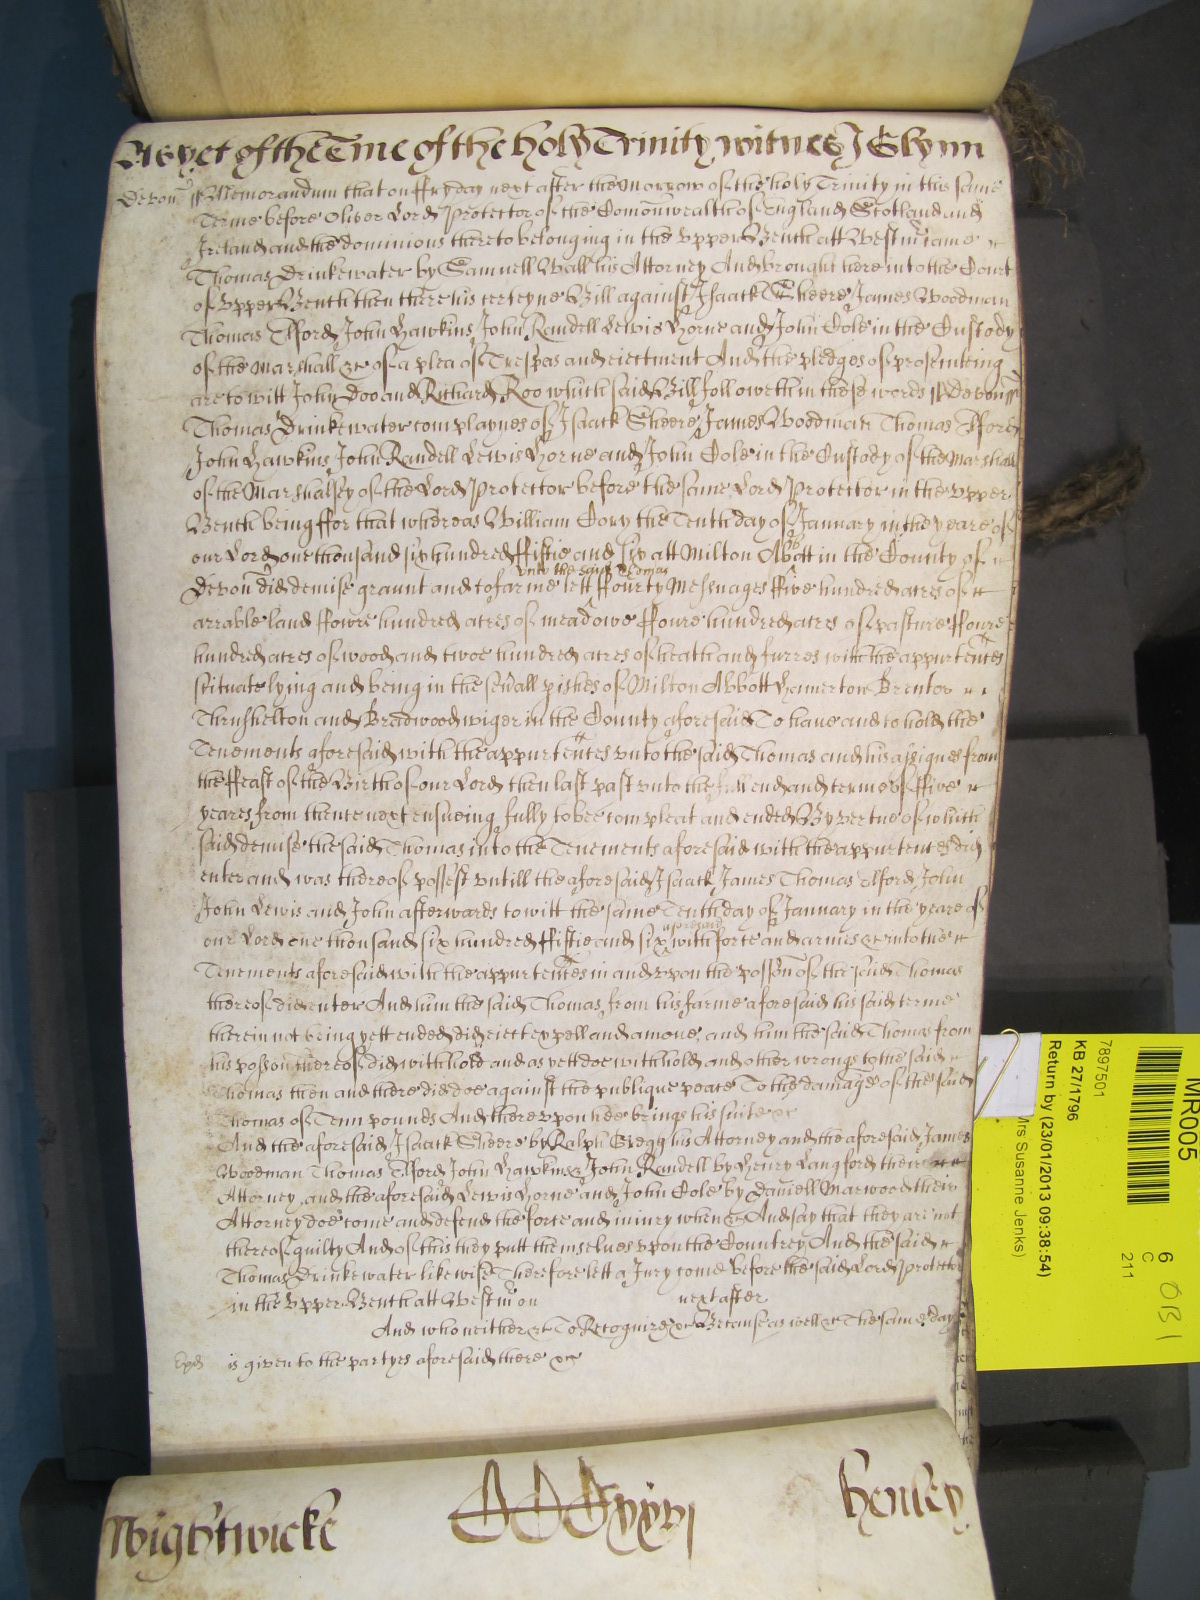 As yet of the Tme of the holy Trinity witnes J Glynn
Devon ss Memorandum that on ffryday next after the Morrow of the holy Trinity in this same
Terme before Oliver Lord Protector of the Comonwealth of England Scotland and
Ireland and the dominions thereto belonging in the vpper Bench att Westm came
Thomas Drinkewater by Samuell Wall his Attorney And brought here into the Court
of vpper Bench then there his certeyne Bill against Isaack Sheere James Woodman
Thomas Alford John Hawkins John Randell Lewis Horne and John Cole in the Custody
of the Marshall &c of a plea of Trespas and eiectment And the pledges of prosecuteing
are to witt John Doo and Richard Roo which said Bill followeth in these words ss Devon ss
Thomas Drinkewater complaynes of Isaack Sheere James Woodman Thomas Alford
John Hawkins John Randell Lewis Horne and John Cole in the Custody of the Marshall
of the Marshalsey of the Lord Protector before the same Lord Protector in the vpper
Bench being ffor that whereas William Cory the Tenth day of January in the yeare of
our Lord one thousand six hundred ffiftie and six att Milton Abbott in the County of
vnto the said Thomas
Devon did demise graunt and to farme lett ffourty Messuages ffive hundred acres of
arrable land ffowre hundred acres of meadowe ffoure hundred acres of pasture ffoure
hundred acres of wood and twoe hundred acres of heath and furres with the appurtences
scituate lying and being in the seuall pishes of Milton Abbott Lamerton Brentor
Thrushelton and Bradwoodwiger in the County aforesaid To haue and to hold the
Tenements aforesaid with the appurtences vnto the said Thomas and his assignes from
the ffeast of the Birth of our Lord then last past vnto the full end and terme of ffive
yeares from thence next ensueing fully to bee compleat and ended By vertue of which
said demise the said Thomas into the Tenements aforesaid with the appurtences did
enter and was thereof possest vntill the aforesaid Isaack James Thomas Alford John
John Lewis and John afterwards to witt the same Tenth day of January in the yeare of
aforesaid
our Lord one thousand six hundred ffiftie and six with force and armes &c into the
Tenements aforesaid with the appurtences in and vpon the possion of the said Thomas
thereof did enter And him the said Thomas from his farme aforesaid his said terme
therein not being yett ended did eiect expell and amoue and him the said Thomas from
his possion thereof did withhold and as yett doe withhold and other wrongs to the said
Thomas then and there did doe against the publique peace To the damage of the said
Thomas of Tenn pounds And therevpon hee brings his suite &c
And the aforesaid Isaack Sheere by Ralph Gregg his Attorney and the aforesaid James
Woodman Thomas Alford John Hawkins John Randell by Henry Langford their
Attorney and the aforesaid Lewis Horne and John Cole by Daniell Marwood their
Attorney doe come and defend the force and iniury when &c And say that they are not
thereof guilty And of this they putt themselues vpon the Countrey And the said
Thomas Drinkewater likewise Therefore lett a Jury come before the said Lord Protector
in the vpper Bench att Westm on next after
And who neither &c To Recognize &c Because as well &c The same day
is given to the partyes aforesaid there &c
Wightwicke CCCxxvi Henley
MR005
7897501
KB 27/1796
Return by (23/01/2013 09:38:54)
Mrs Susanne Jenks)
6
C
211